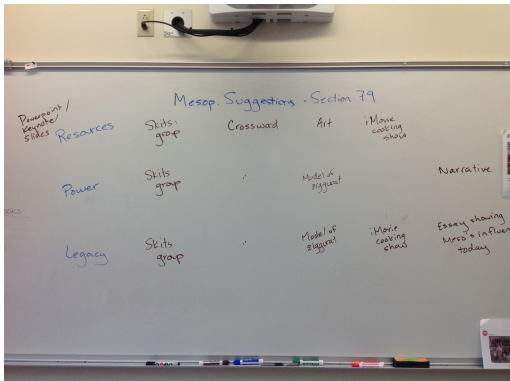 Mesop. Suggestions - Section 79
Powerpoint/
Keynote/
slides
Resources
Skits:
group
Crossword
Art
iMovie
cooking
show
Power
Skits
group
Model of
Ziggurat
Narrative
Legacy
Skits
group
Model of
Ziggurat
iMovie
cooking
show
Essay showing
Meso's influen
today